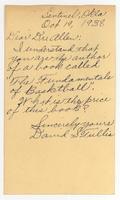 Sentinel, Okla
Oct 19, 1938
Dear Dr. Allen:
I understand that
you are the author
of a book called
"The Fundamentals
of Basketball".
What is the price
of this book?
Sincerely yours
David S. Tullis